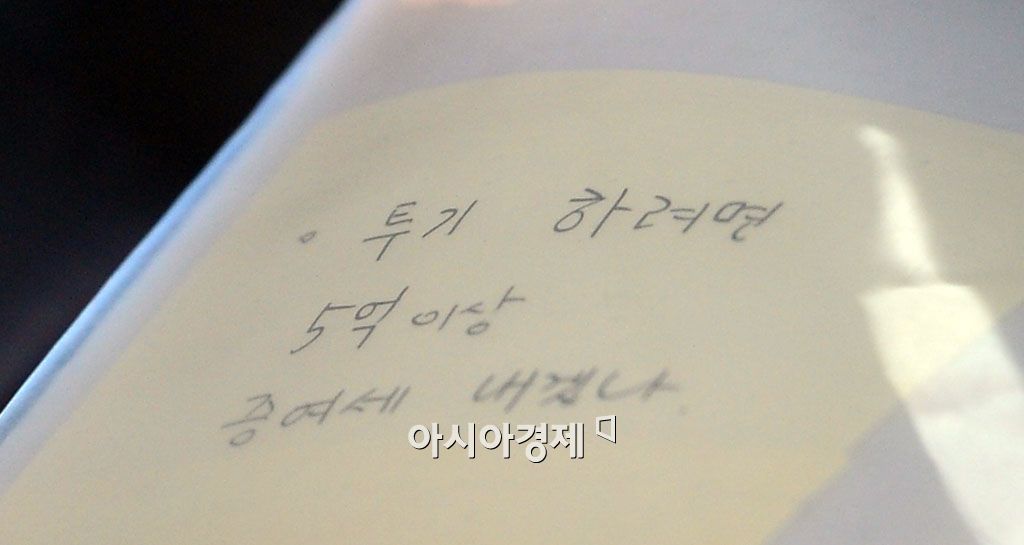 • 투기 하려면
5억이상
증여세 내겠나.
아시아경제